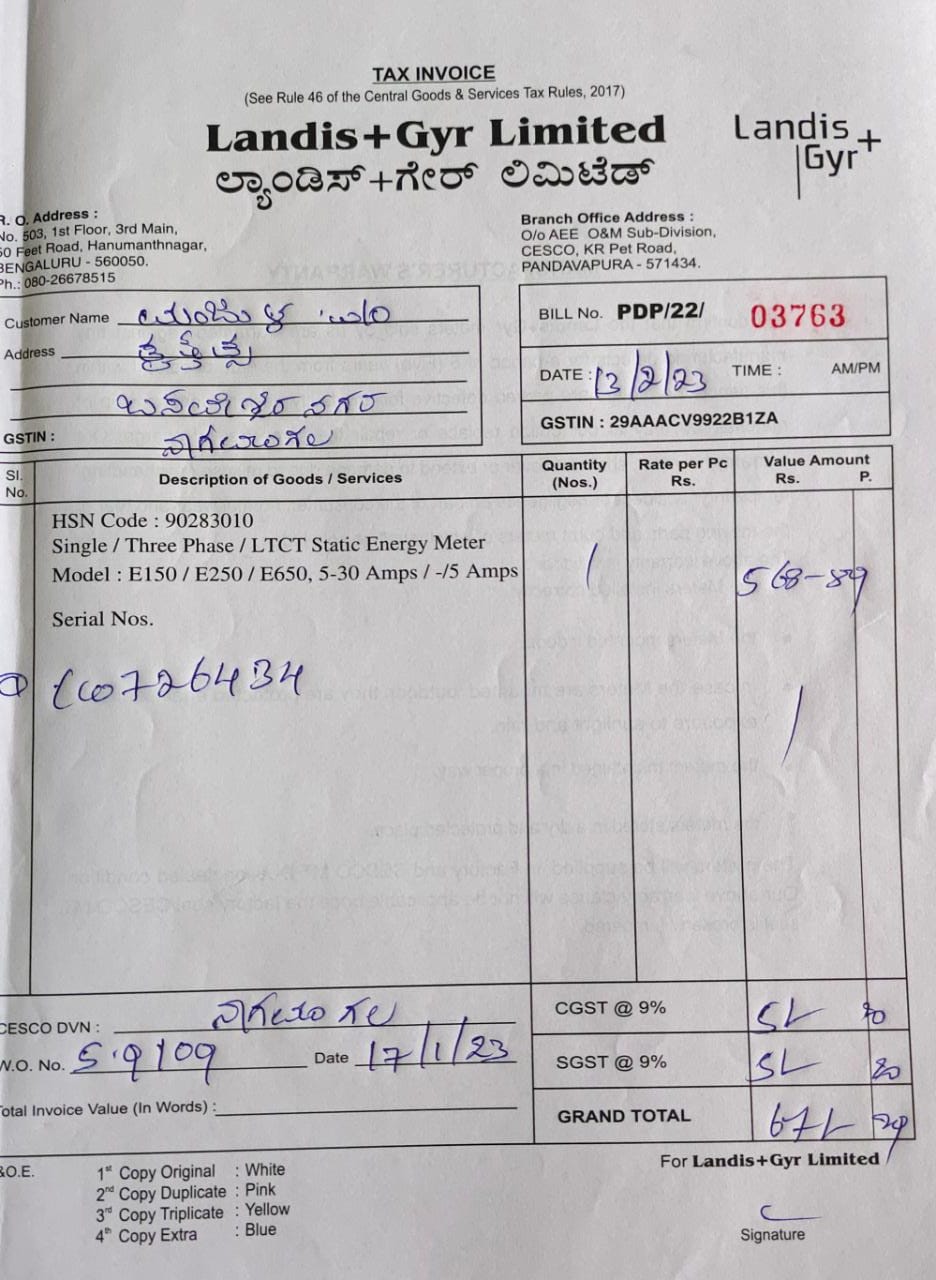 TAX INVOICE
(See Rule 46 of the Central Goods & Services Tax Rules, 2017)
Landis+Gyr Limited
ಲ್ಯಾಂಡಿಸ್+ಗೇರ್ ಲಿಮಿಟೆಡ್
Landis+
Gyr
R. O. Address :
No. 503, 1st Floor, 3rd Main,
50 Feet Road, Hanumanthnagar,
BENGALURU - 560050.
Ph.: 080-26678515
Branch Office Address :
O/o AEE O&M Sub-Division,
CESCO, KR Pet Road,
PANDAVAPURA - 571434.
Customer Name
Address
ನಗರ
GSTIN : ನಾಗಮಂಗಲ
BILL No. PDP/22/ 03763
DATE : 13/2/23 TIME : AM/PM
GSTIN : 29AAACV9922B1ZA
Sl. No. Description of Goods / Services Quantity (Nos.) Rate per Pc Rs. Value Amount Rs. P.
HSN Code : 90283010
Single / Three Phase / LTCT Static Energy Meter
Model : E150 / E250 / E650, 5-30 Amps / -/5 Amps 1 568-89
Serial Nos.
726434
CESCO DVN : ನಾಗಮಂಗಲ
W.O. No. 59109 Date 17/1/23
Total Invoice Value (In Words) :
CGST @ 9%
SGST @ 9%
GRAND TOTAL
&O.E.
1st Copy Original : White
2nd Copy Duplicate : Pink
3rd Copy Triplicate : Yellow
4th Copy Extra : Blue
For Landis+Gyr Limited
Signature